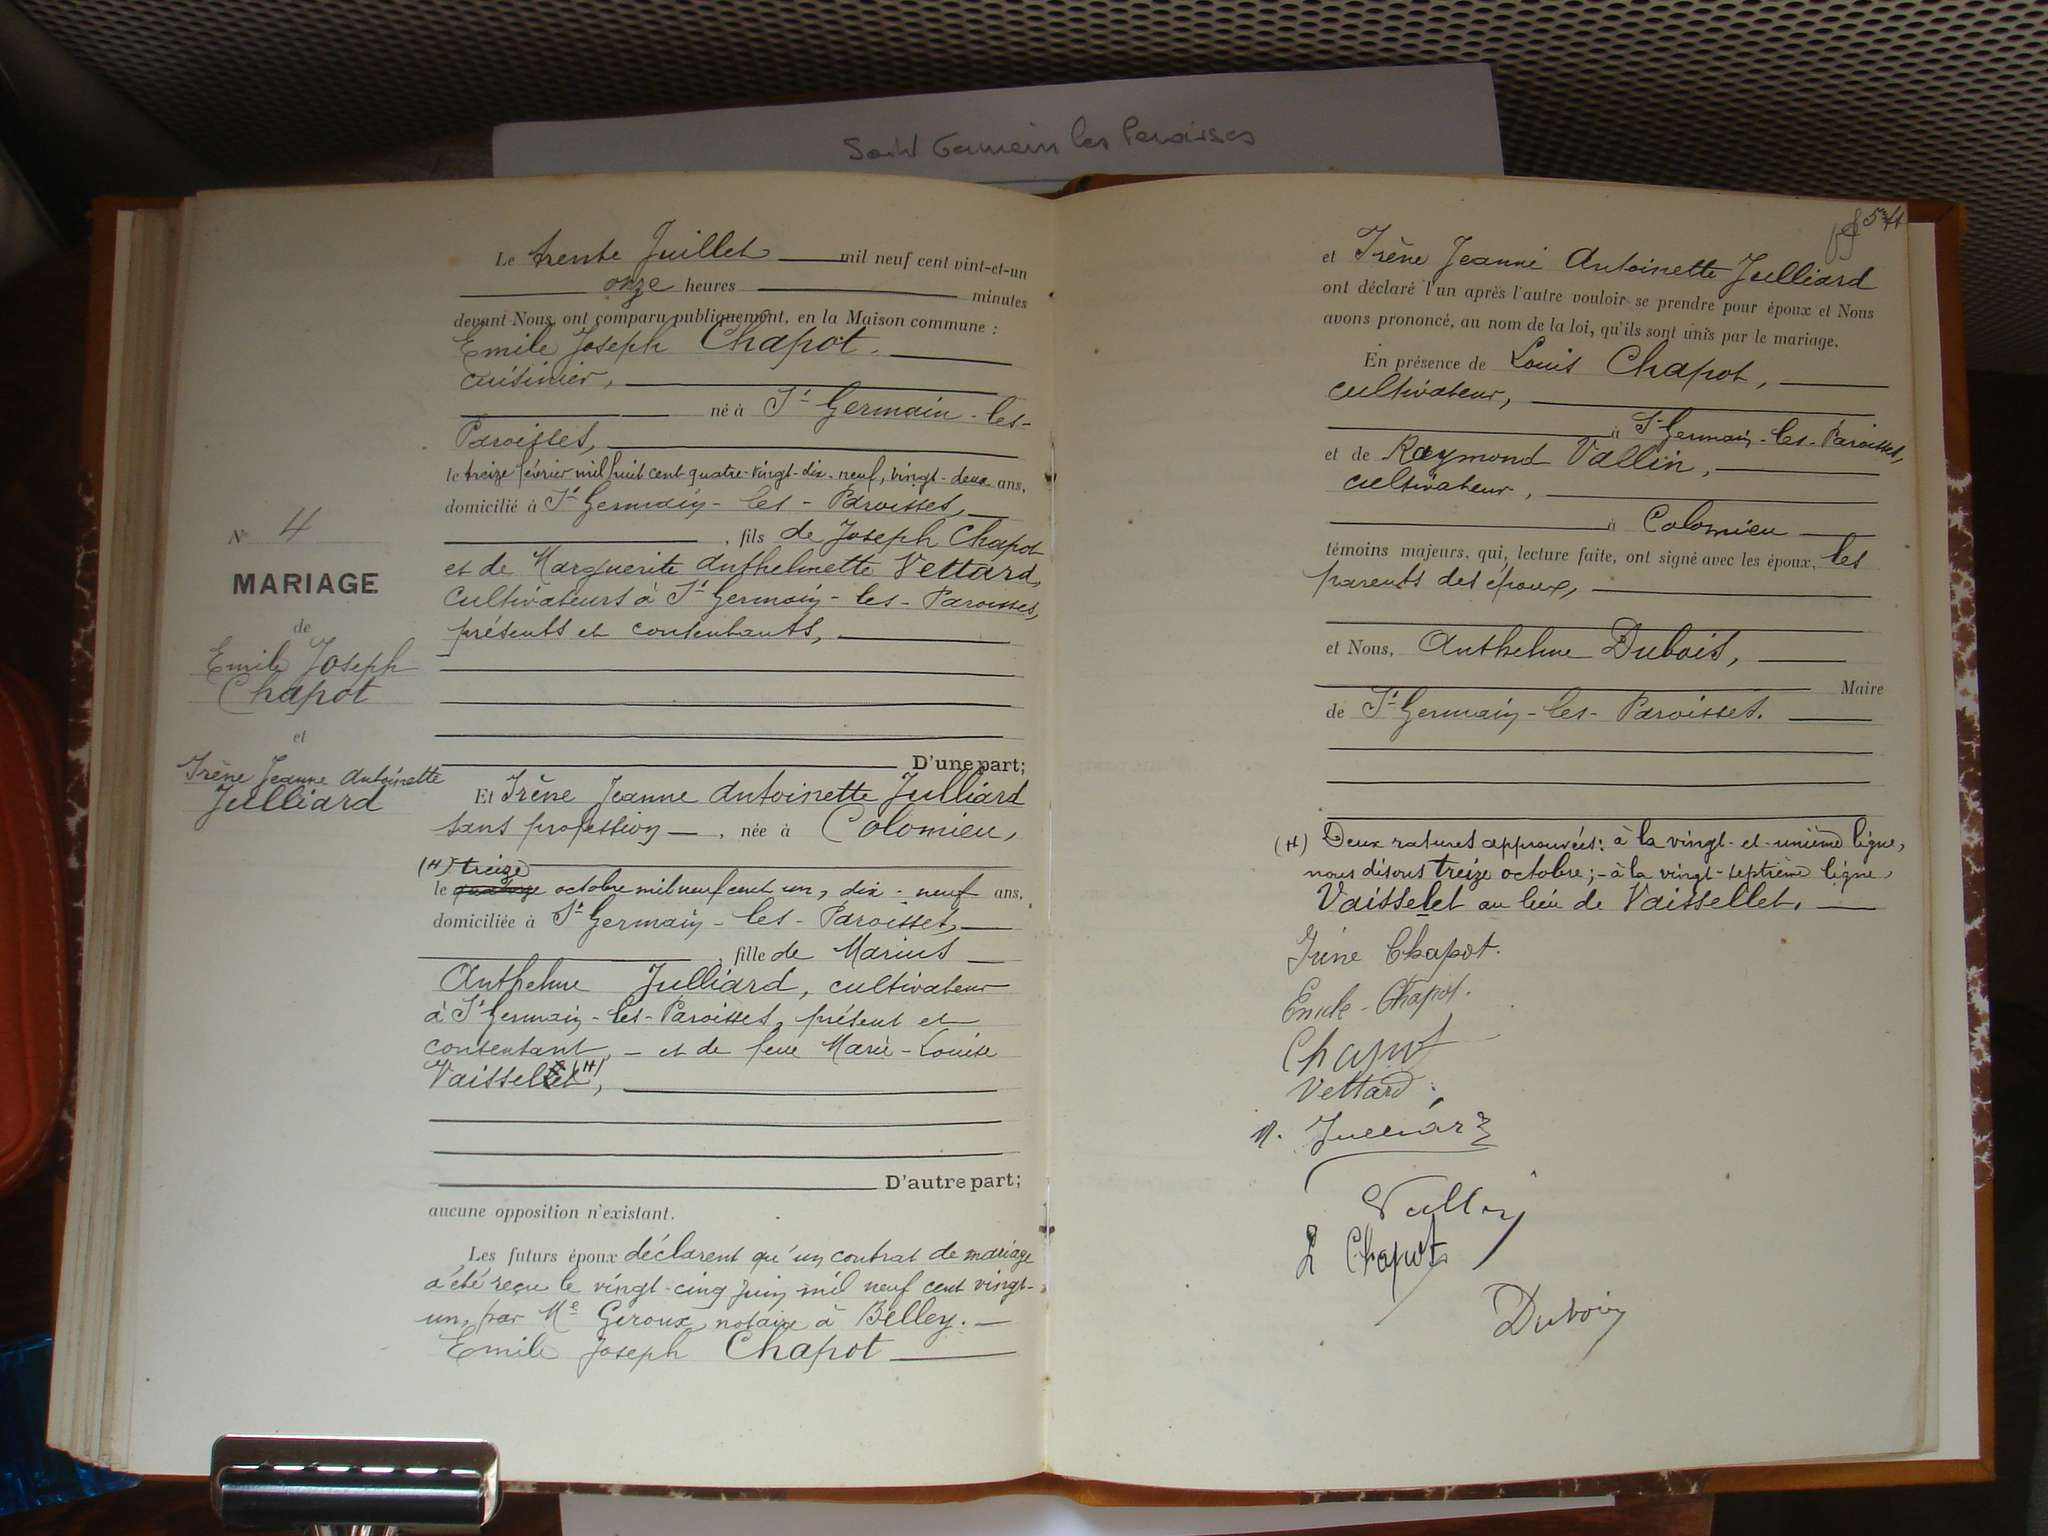 Saint Germain les Paroisses
Le trente Juillet mil neuf cent vint-et-un
onze heures minutes
devant Nous, ont comparu publiquement, en la Maison commune :
Emile Joseph Chapot,
cuisinier,
né à St Germain-les-
Paroisses,
le treize février mil huit cent quatre-vingt-dix-neuf, vingt-deux ans,
domicilié à St Germain-les-Paroisses,
, fils de Joseph Chapot
et de Marguerite Anthelmette Vettard,
cultivateurs à St Germain-les-Paroisses,
présents et consentants,
D'une part;
Et Irène Jeanne Antoinette Julliard
sans profession, née à Colomieu,
(H) treize
le quatorze octobre mil neuf cent un, dix-neuf ans,
domiciliée à St Germain-les-Paroisses,
, fille de Marius
Anthelme Julliard, cultivateur
à St Germain-les-Paroisses, présent et
consentant, - et de feue Marie-Louise
Vaisselet (H),
D'autre part;
aucune opposition n'existant.
Les futurs époux déclarent qu'un contrat de mariage
a été reçu le vingt-cinq juin mil neuf cent vingt-
un, par Me Geroux, notaire à Belley.
Emile Joseph Chapot
No 4
MARIAGE
de
Emile Joseph
Chapot
et
Irène Jeanne Antoinette
Julliard
et Irène Jeanne Antoinette Julliard
ont déclaré l'un après l'autre vouloir se prendre pour époux et Nous
avons prononcé, au nom de la loi, qu'ils sont unis par le mariage.
En présence de Louis Chapot,
cultivateur,
à St Germain-les-Paroisses,
et de Raymond Vallin,
cultivateur,
à Colomieu
témoins majeurs, qui, lecture faite, ont signé avec les époux, les
parents des époux,
et Nous, Anthelme Dubois,
Maire
de St Germain-les-Paroisses.
(H) Deux ratures approuvées : à la vingt-et-unième ligne,
nous disons treize octobre ; - à la vingt-septième ligne,
Vaisselet au lieu de Vaissellet.
Irène Chapot.
Emile Chapot.
Chapot
Vettard
M. Julliard
Vallin
L Chapot
Dubois